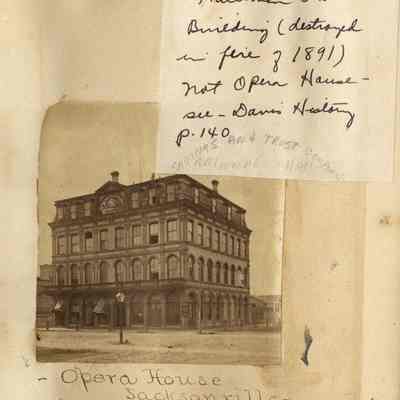 Building (destroyed
in fire of 1891)
Not Opera House -
see - Davis History
p. 140
SAVINGS AND TRUST
- Opera House
Jacksonville